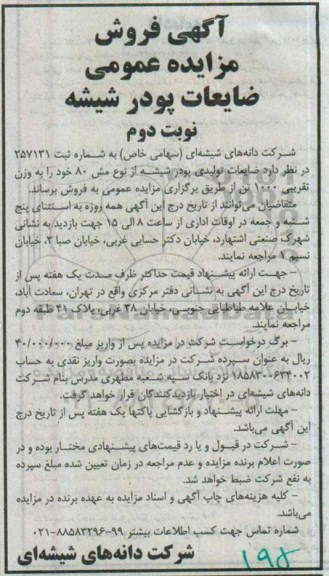 آگهی فروش
مزایده عمومی
ضایعات پودر شیشه
نوبت دوم
شرکت دانه‌های شیشه‌ای (سهامی خاص) به شماره ثبت ۲۵۷۱۳۱
در نظر دارد ضایعات تولیدی پودر شیشه از نوع مش ۸۰ خود را به وزن
تقریبی ۱۰۰۰ تن از طریق برگزاری مزایده عمومی به فروش برساند.
متقاضیان می‌توانند از تاریخ درج این آگهی همه روزه به استثنای پنج
شنبه و جمعه در اوقات اداری از ساعت ۸ الی ۱۵ جهت بازدید به نشانی
شهرک صنعتی اشتهارد، خیابان دکتر حسابی غربی، خیابان صبا ۲، خیابان
نسیم ۱ مراجعه نمایند.
- جهت ارائه پیشنهاد قیمت حداکثر ظرف مدت یک هفته پس از
تاریخ درج این آگهی به نشانی دفتر مرکزی واقع در تهران، سعادت آباد،
خیابان علامه طباطبایی جنوبی، خیابان ۳۸ غربی، پلاک ۴۱ طبقه دوم
مراجعه نمایند.
- برگ درخواست شرکت در مزایده پس از واریز مبلغ ۴۰/۰۰۰/۰۰۰
ریال به عنوان سپرده شرکت در مزایده بصورت واریز نقدی به حساب
نزد بانک سپه شعبه مطهری مدرس بنام شرکت
دانه‌های شیشه‌ای در اختیار بازدیدکنندگان قرار خواهد گرفت.
- مهلت ارائه پیشنهاد و بازگشایی پاکتها یک هفته پس از تاریخ درج
این آگهی می‌باشد.
- شرکت در قبول و یا رد قیمت‌های پیشنهادی مختار بوده و در
صورت اعلام برنده مزایده و عدم مراجعه در زمان تعیین شده مبلغ سپرده
به نفع شرکت ضبط خواهد شد.
- کلیه هزینه‌های چاپ آگهی و اسناد مزایده به عهده برنده در مزایده
می‌باشد.
شماره تماس جهت کسب اطلاعات بیشتر ۹۹-۸۸۵۸۳۲۹۶-۰۲۱
شرکت دانه‌های شیشه‌ای